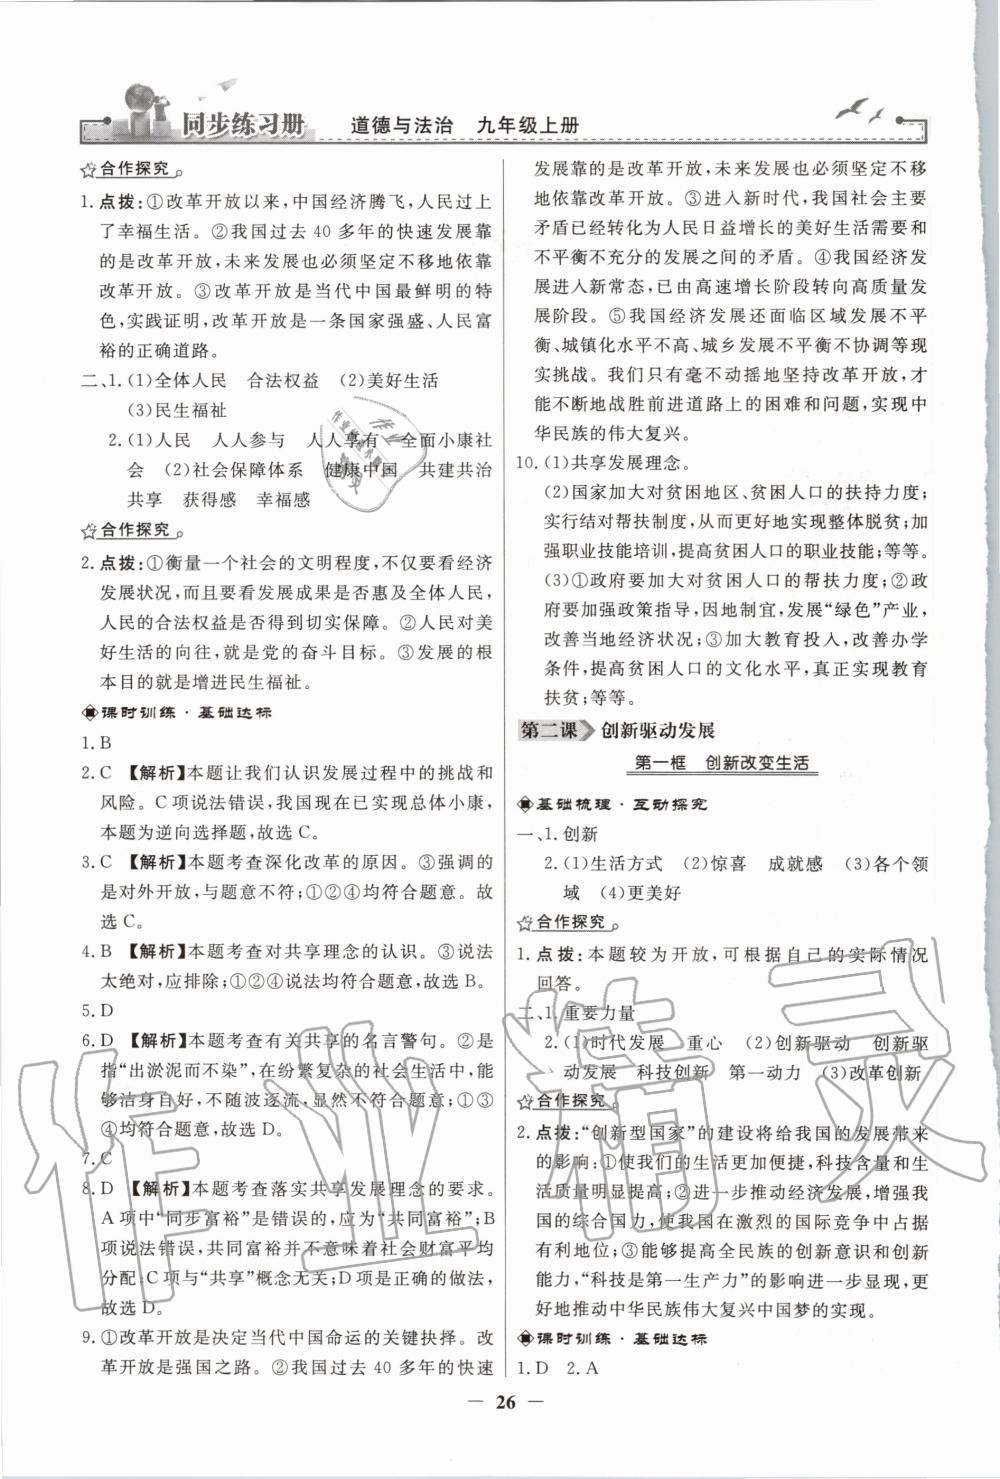 同步练习册 道德与法治 九年级上册
合作探究
1. 点拨:①改革开放以来,中国经济腾飞,人民过上
了幸福生活。②我国过去 40 多年的快速发展靠
的是改革开放,未来发展也必须坚定不移地依靠
改革开放。③改革开放是当代中国最鲜明的特
色,实践证明,改革开放是一条国家强盛、人民富
裕的正确道路。
二、1. (1)全体人民 合法权益 (2)美好生活
(3)民生福祉
2. (1)人民 人人参与 人人享有 全面小康社
会 (2)社会保障体系 健康中国 共建共治
共享 获得感 幸福感
合作探究
2. 点拨:①衡量一个社会的文明程度,不仅要看经济
发展状况,而且要看发展成果是否惠及全体人民,
人民的合法权益是否得到切实保障。②人民对美
好生活的向往,就是党的奋斗目标。③发展的根
本目的就是增进民生福祉。
课时训练·基础达标
1. B
2. C 【解析】本题让我们认识发展过程中的挑战和
风险。C 项说法错误,我国现在已实现总体小康,
本题为逆向选择题,故选 C。
3. C 【解析】本题考查深化改革的原因。③强调的
是对外开放,与题意不符;①②④均符合题意。故
选 C。
4. B 【解析】本题考查对共享理念的认识。③说法
太绝对,应排除;①②④说法均符合题意,故选 B。
5. D
6. D 【解析】本题考查有关共享的名言警句。②是
指“出淤泥而不染”,在纷繁复杂的社会生活中,能
够洁身自好,不随波逐流,显然不符合题意;①③
④均符合题意。故选 D。
7. C
8. D 【解析】本题考查落实共享发展理念的要求。
A 项中“同步富裕”是错误的,应为“共同富裕”;B
项说法错误,共同富裕并不意味着社会财富平均
分配;C 项与“共享”概念无关;D 项是正确的做法,
故选 D。
9. ①改革开放是决定当代中国命运的关键抉择。改
革开放是强国之路。②我国过去 40 多年的快速
发展靠的是改革开放,未来发展也必须坚定不移
地依靠改革开放。③进入新时代,我国社会主要
矛盾已经转化为人民日益增长的美好生活需要
和不平衡不充分的发展之间的矛盾。④我国经济发
展进入新常态,已由高速增长阶段转向高质量发
展阶段。⑤我国经济发展还面临区域发展不平
衡、城镇化水平不高、城乡发展不平衡不协调等现
实挑战。我们只有毫不动摇地坚持改革开放,才
能不断地战胜前进道路上的困难和问题,实现中
华民族的伟大复兴。
10. (1)共享发展理念。
(2)国家加大对贫困地区、贫困人口的扶持力度;
实行结对帮扶制度,从而更好地实现整体脱贫;加
强职业技能培训,提高贫困人口的职业技能;等等。
(3)①政府要加大对贫困人口的帮扶力度;②政
府要加强政策指导,因地制宜,发展“绿色”产业,
改善当地经济状况;③加大教育投入,改善办学
条件,提高贫困人口的文化水平,真正实现教育
扶贫;等等。
第二课 创新驱动发展
第一框 创新改变生活
基础梳理·互动探究
一、1. 创新
2. (1)生活方式 (2)惊喜 成就感 (3)各个领
域 (4)更美好
合作探究
1. 点拨:本题较为开放,可根据自己的实际情况
回答。
二、1. 重要力量
2. (1)时代发展 重心 (2)创新驱动 创新驱
动发展 科技创新 第一动力 (3)改革创新
合作探究
2. 点拨:“创新型国家”的建设将给我国的发展带来
的影响:①使我们的生活更加便捷,科技含量和生
活质量明显提高;②进一步推动经济发展,增强我
国的综合国力,使我国在激烈的国际竞争中占据
有利地位;③能够提高全民族的创新意识和创新
能力,“科技是第一生产力”的影响进一步显现,更
好地推动中华民族伟大复兴中国梦的实现。
课时训练·基础达标
1. D 2. A
— 26 —
作业精灵